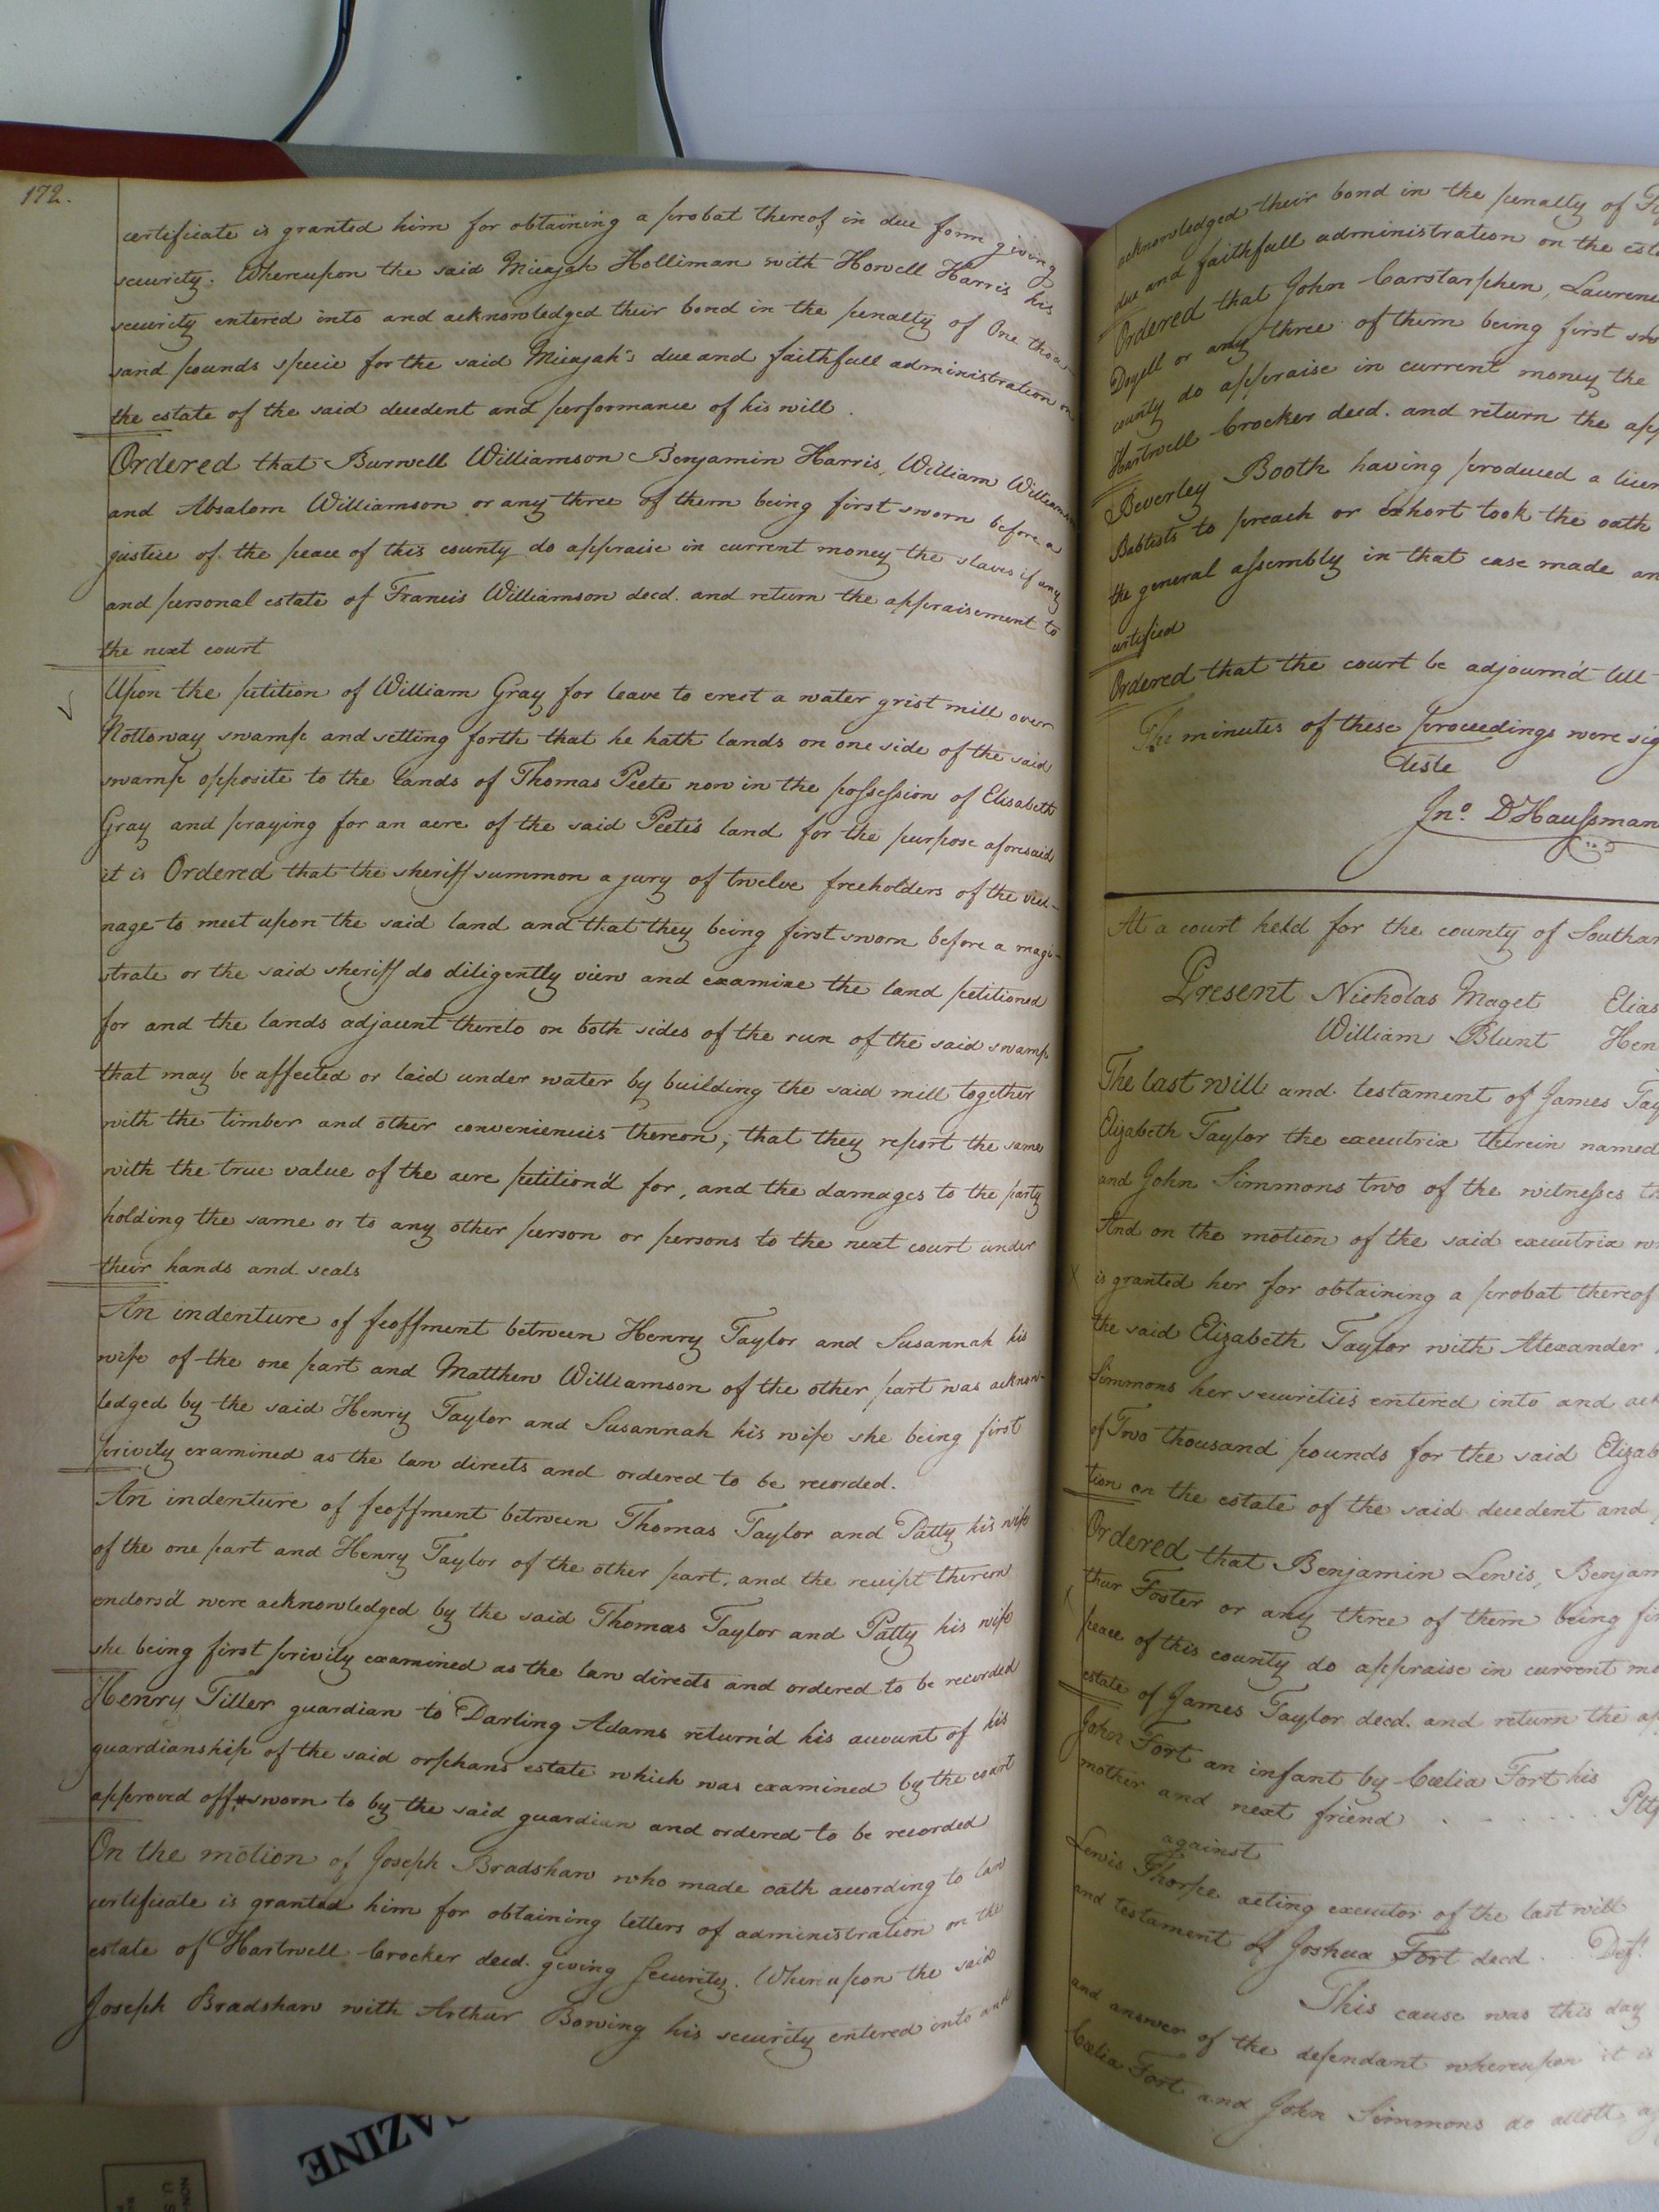 172.
certificate is granted him for obtaining a probat thereof in due form giving
security. Whereupon the said Micajah Holliman with Howell Harris his
security entered into and acknowledged their bond in the penalty of One thou-
sand pounds specie for the said Micajah's due and faithfull administration on
the estate of the said decedent and performance of his will.
Ordered that Burwell Williamson Benjamin Harris, William Williamson
and Absalom Williamson or any three of them being first sworn before a
justice of the peace of this county do appraise in current money the slaves if any
and personal estate of Francis Williamson decd. and return the appraisement to
the next court
Upon the petition of William Gray for leave to erect a water grist mill over
Nottoway swamp and setting forth that he hath lands on one side of the said
swamp opposite to the lands of Thomas Peete now in the possession of Elisabeth
Gray and praying for an acre of the said Peete's land for the purpose aforesaid
it is Ordered that the sheriff summon a jury of twelve freeholders of the vici-
nage to meet upon the said land and that they being first sworn before a magi-
strate or the said sheriff do diligently view and examine the land petitioned
for and the lands adjacent thereto on both sides of the run of the said swamp
that may be affected or laid under water by building the said mill together
with the timber and other conveniencies thereon; that they report the same
with the true value of the acre petition'd for, and the damages to the party
holding the same or to any other person or persons to the next court under
their hands and seals
An indenture of feoffment between Henry Taylor and Susannah his
wife of the one part and Matthew Williamson of the other part was acknow-
ledged by the said Henry Taylor and Susannah his wife she being first
privily examined as the law directs and ordered to be recorded.
An indenture of feoffment between Thomas Taylor and Patty his wife
of the one part and Henry Taylor of the other part, and the receipt thereon
endors'd were acknowledged by the said Thomas Taylor and Patty his wife
she being first privily examined as the law directs and ordered to be recorded
Henry Tiller guardian to Darling Adams return'd his account of his
guardianship of the said orphans estate which was examined by the court
approved off sworn to by the said guardian and ordered to be recorded
On the motion of Joseph Bradshaw who made oath according to law
certificate is granted him for obtaining letters of administration on the
estate of Hartwell Crocker decd. giving security. Whereupon the said
Joseph Bradshaw with Arthur Bowing his security entered into and
acknowledged their bond in the penalty of
due and faithfull administration on the esta
Ordered that John Carstarphen, Laurenc
Doyell or any three of them being first swo
county do appraise in current money the
Hartwell Crocker decd. and return the app
Beverley Booth having produced a licen
Babtists to preach or exhort took the oath
the general assembly in that case made an
certified
Ordered that the court be adjourn'd till
The minutes of these proceedings were sig
Teste
Jno. D'Haussman
At a court held for the county of Southa
Present Nicholas Maget Elias
William Blunt Hen
The last will and testament of James Tay
Elizabeth Taylor the executrix therein named
and John Simmons two of the witnesses th
And on the motion of the said executrix w
is granted her for obtaining a probat thereof
the said Elizabeth Taylor with Alexander
Simmons her securities entered into and ack
of Two thousand pounds for the said Elizab
tion on the estate of the said decedent and
Ordered that Benjamin Lewis, Benjam
thur Foster or any three of them being fir
peace of this county do appraise in current mo
estate of James Taylor decd. and return the ap
John Fort an infant by Cœlia Fort his
mother and next friend Pltf
against
Lewis Thorpe acting executor of the last will
and testament of Joshua Fort decd. Deft.
This cause was this day
and answer of the defendant whereupon it is
Cœlia Fort and John Simmons do allott
AZINE